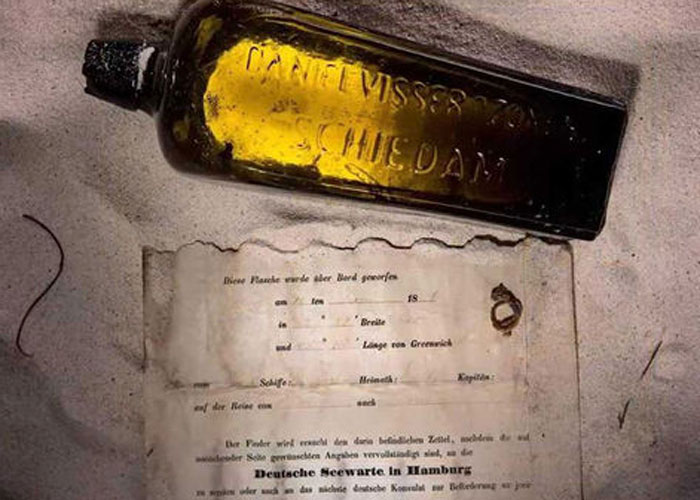 DANIEL VISSER & ZONEN
SCHIEDAM
Diese Flasche wurde über Bord geworfen
am ten 18
in ° ' Breite
und ° ' Länge von Greenwich
vom Schiffe: Heimath: Kapitän:
auf der Reise von nach
Der Finder wird ersucht den darin befindlichen Zettel, nachdem die auf
umstehender Seite gewünschten Angaben vervollständigt sind, an die
Deutsche Seewarte in Hamburg
zu senden oder auch an das nächste deutsche Konsulat zur Beförderung an jene